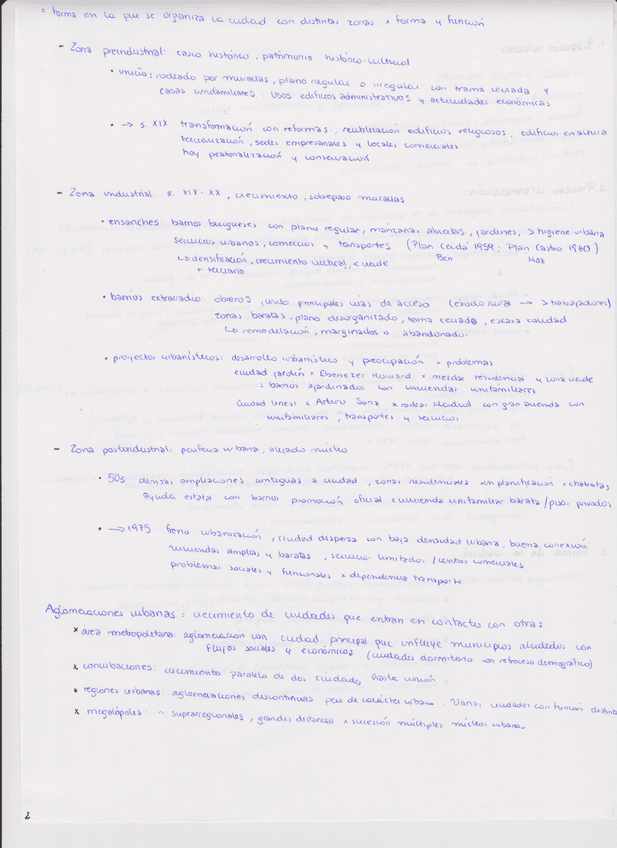 = forma en la que se organiza la ciudad con distintas zonas x forma y función
- Zona preindustrial: casco histórico, patrimonio histórico-cultural
• inicio: rodeado por murallas, plano regular o irregular con trama cerrada y
casas unifamiliares. Usos edificios administrativos y actividades económicas
• → s. XIX transformación con reformas, reutilización edificios religiosos, edificios en altura
terciarización, sedes empresariales y locales comerciales
hoy peatonalización y conservación
- Zona industrial: s. XIX-XX, crecimiento, sobrepaso murallas
• ensanches: barrios burgueses con plano regular, manzana abiertas, jardines, > higiene urbana
servicios urbanos, comercios y transportes (Plan Cerdá 1959; Plan Castro 1960)
↳ densificación, crecimiento vertical, < verde Bcn Mdz
+ terciario
• barrios extrarradio obreros junto principales vías de acceso (éxodo rural → > trabajadores)
zonas baratas, plano desorganizado, trama cerrada, escasa calidad
↳ remodelación, marginados o abandonado.
• proyectos urbanísticos: desarrollo urbanístico y preocupación x problemas
ciudad jardín x Ebenezer Howard x mezclar residencial y zona verde
= barrios ajardinados con viviendas unifamiliares
Ciudad lineal x Arturo Soria x rodear Madrid con gran avenida con
unifamiliares, transportes y servicios.
- Zona postindustrial: periferia urbana, alejado núcleo
• 50s densas ampliaciones contiguas a ciudad, zonas residenciales sin planificación = chabolas,
ayuda estatal con barrios promoción oficial c vivienda unifamiliar barata / pisos privados
• → 1975 freno urbanización, ciudad dispersa con baja densidad urbana, buena conexión
viviendas amplias y baratas, servicios limitados / centros comerciales
problemas sociales y funcionales x dependencia transporte
Aglomeraciones urbanas = crecimiento de ciudades que entran en contacto con otras
x área metropolitana: aglomeración con ciudad principal que influye municipios alrededor con
flujos sociales y económicos (ciudades dormitorio con retroceso demográfico)
x conurbaciones: crecimiento paralelo de dos ciudades hasta unión
x regiones urbanas: aglomeraciones discontinuas pero de carácter urbano. Varias ciudades con función distinta
x megalópolis: ~ suprarregionales, grandes distancias x sucesión múltiples núcleos urbanos
2